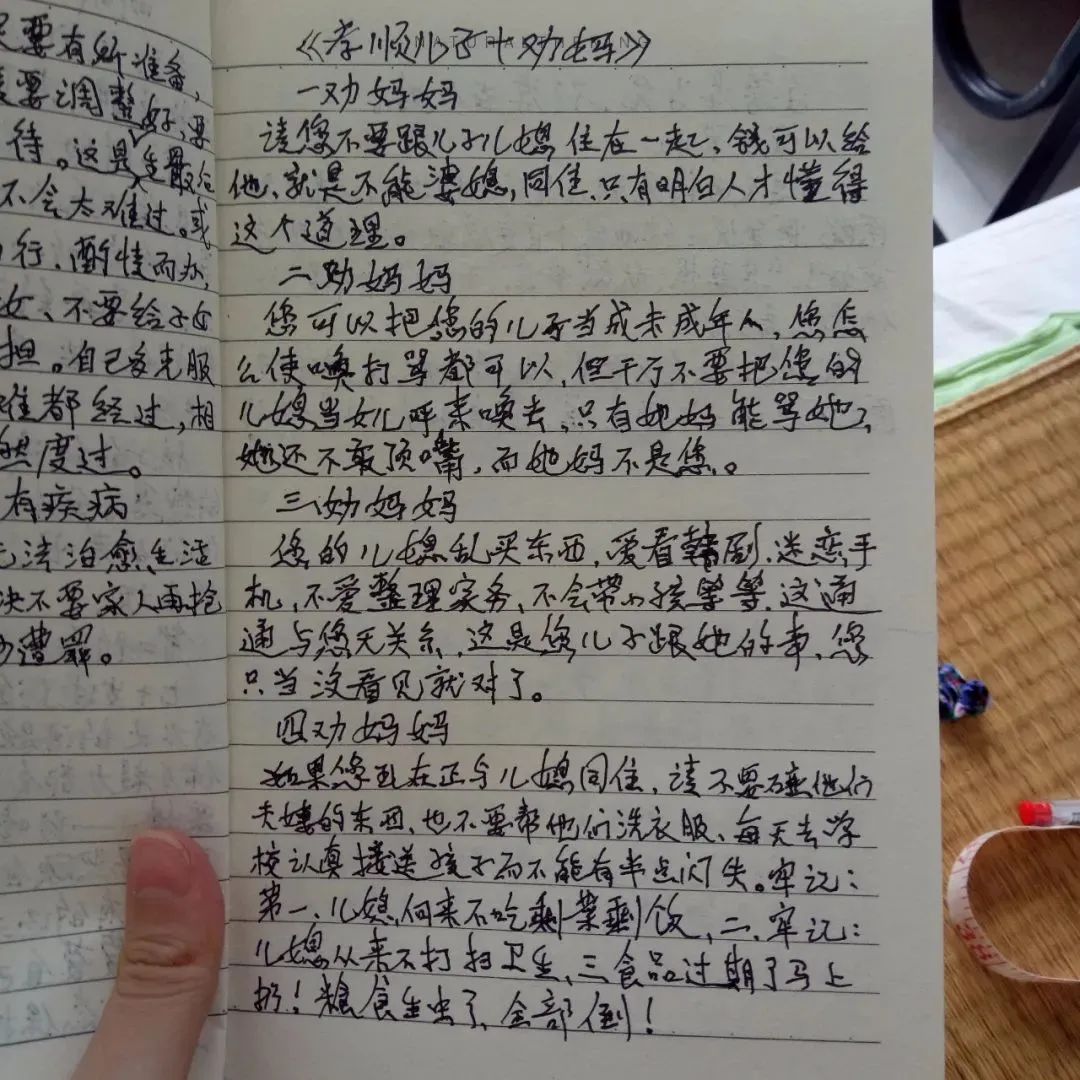 只要有所准备,
要调整好,要
待。这是生散后
不会太难过。或
行、酌情而办,
女、不要给子女
担。自己多克服
难都经过,相
然度过。
有疾病
无法治愈生活
决不要家人再抢
遭罪。
《孝顺儿子十劝妈》
一劝妈妈
请您不要跟儿子儿媳住在一起、钱可以给
他、就是不能婆媳,同住、只有明白人才懂得
这个道理。
二劝妈妈
您可以把您的儿子当成未成年人、您怎
么使唤打骂都可以、但千万不要把您的
儿媳当女儿呼来唤去、只有她妈能骂她了、
她还不敢顶嘴,而她妈不是您。
三劝妈妈
您的儿媳乱买东西、爱看韩剧、迷恋手
机、不爱整理家务、不会带小孩等等、这通
通与您无关系、这是您儿子跟她的事、您
只当没看见就对了。
四劝妈妈
如果您现在正与儿媳同住、请不要碰他们
夫妻的东西、也不要帮他们洗衣服、每天去学
校认真接送孩子而不能有半点闪失。牢记:
第一、儿媳,向来不吃剩菜剩饭,二、牢记:
儿媳从来不打扫卫生、三食品过期了马上
扔!粮食生虫了、全部倒!